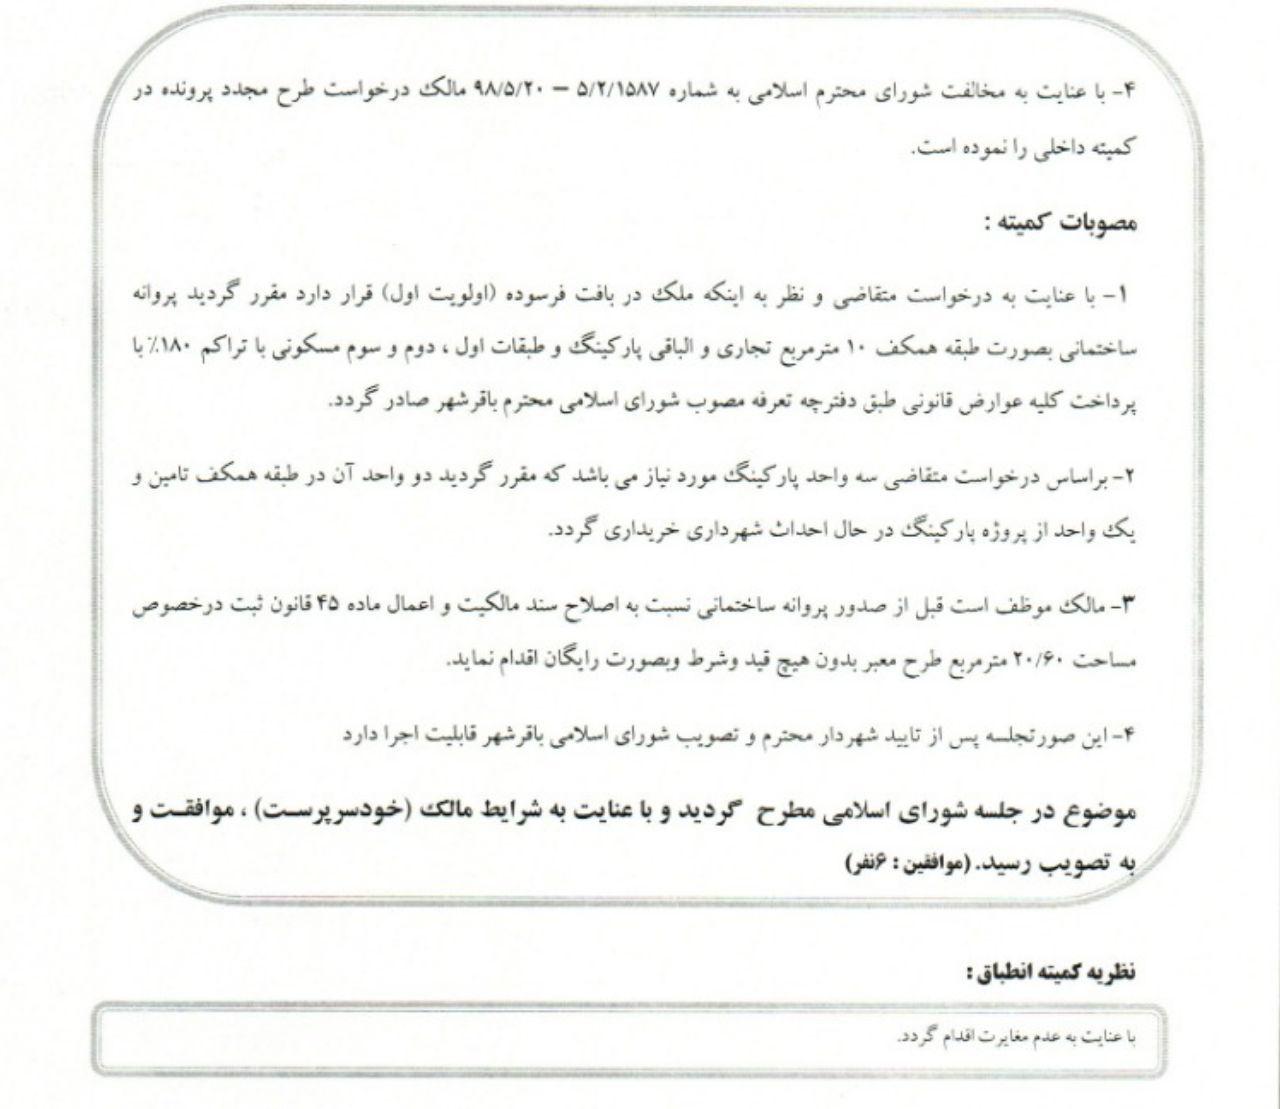 ۴- با عنایت به مخالفت شورای محترم اسلامی به شماره ۵/۲/۱۵۸۷ – ۹۸/۵/۲۰ مالک درخواست طرح مجدد پرونده در
کمیته داخلی را نموده است.
مصوبات کمیته :
۱- با عنایت به درخواست متقاضی و نظر به اینکه ملک در بافت فرسوده (اولویت اول) قرار دارد مقرر گردید پروانه
ساختمانی بصورت طبقه همکف ۱۰ مترمربع تجاری و الباقی پارکینگ و طبقات اول ، دوم و سوم مسکونی با تراکم ۱۸۰٪ با
پرداخت کلیه عوارض قانونی طبق دفترچه تعرفه مصوب شورای اسلامی محترم باقرشهر صادر گردد.
۲- براساس درخواست متقاضی سه واحد پارکینگ مورد نیاز می باشد که مقرر گردید دو واحد آن در طبقه همکف تامین و
یک واحد از پروژه پارکینگ در حال احداث شهرداری خریداری گردد.
۳- مالک موظف است قبل از صدور پروانه ساختمانی نسبت به اصلاح سند مالکیت و اعمال ماده ۴۵ قانون ثبت درخصوص
مساحت ۲۰/۶۰ مترمربع طرح معبر بدون هیچ قید وشرط وبصورت رایگان اقدام نماید.
۴- این صورتجلسه پس از تایید شهردار محترم و تصویب شورای اسلامی باقرشهر قابلیت اجرا دارد
موضوع در جلسه شورای اسلامی مطرح گردید و با عنایت به شرایط مالک (خودسرپرست) ، موافقت و
به تصویب رسید. (موافقین : ۶نفر)
نظریه کمیته انطباق :
با عنایت به عدم مغایرت اقدام گردد.